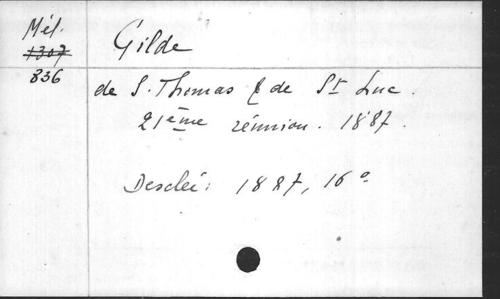 Mél.
1307
836
Gilde
de S. Thomas & de St Luc.
21ème réunion. 1887.
Desclée: 1887, 16°